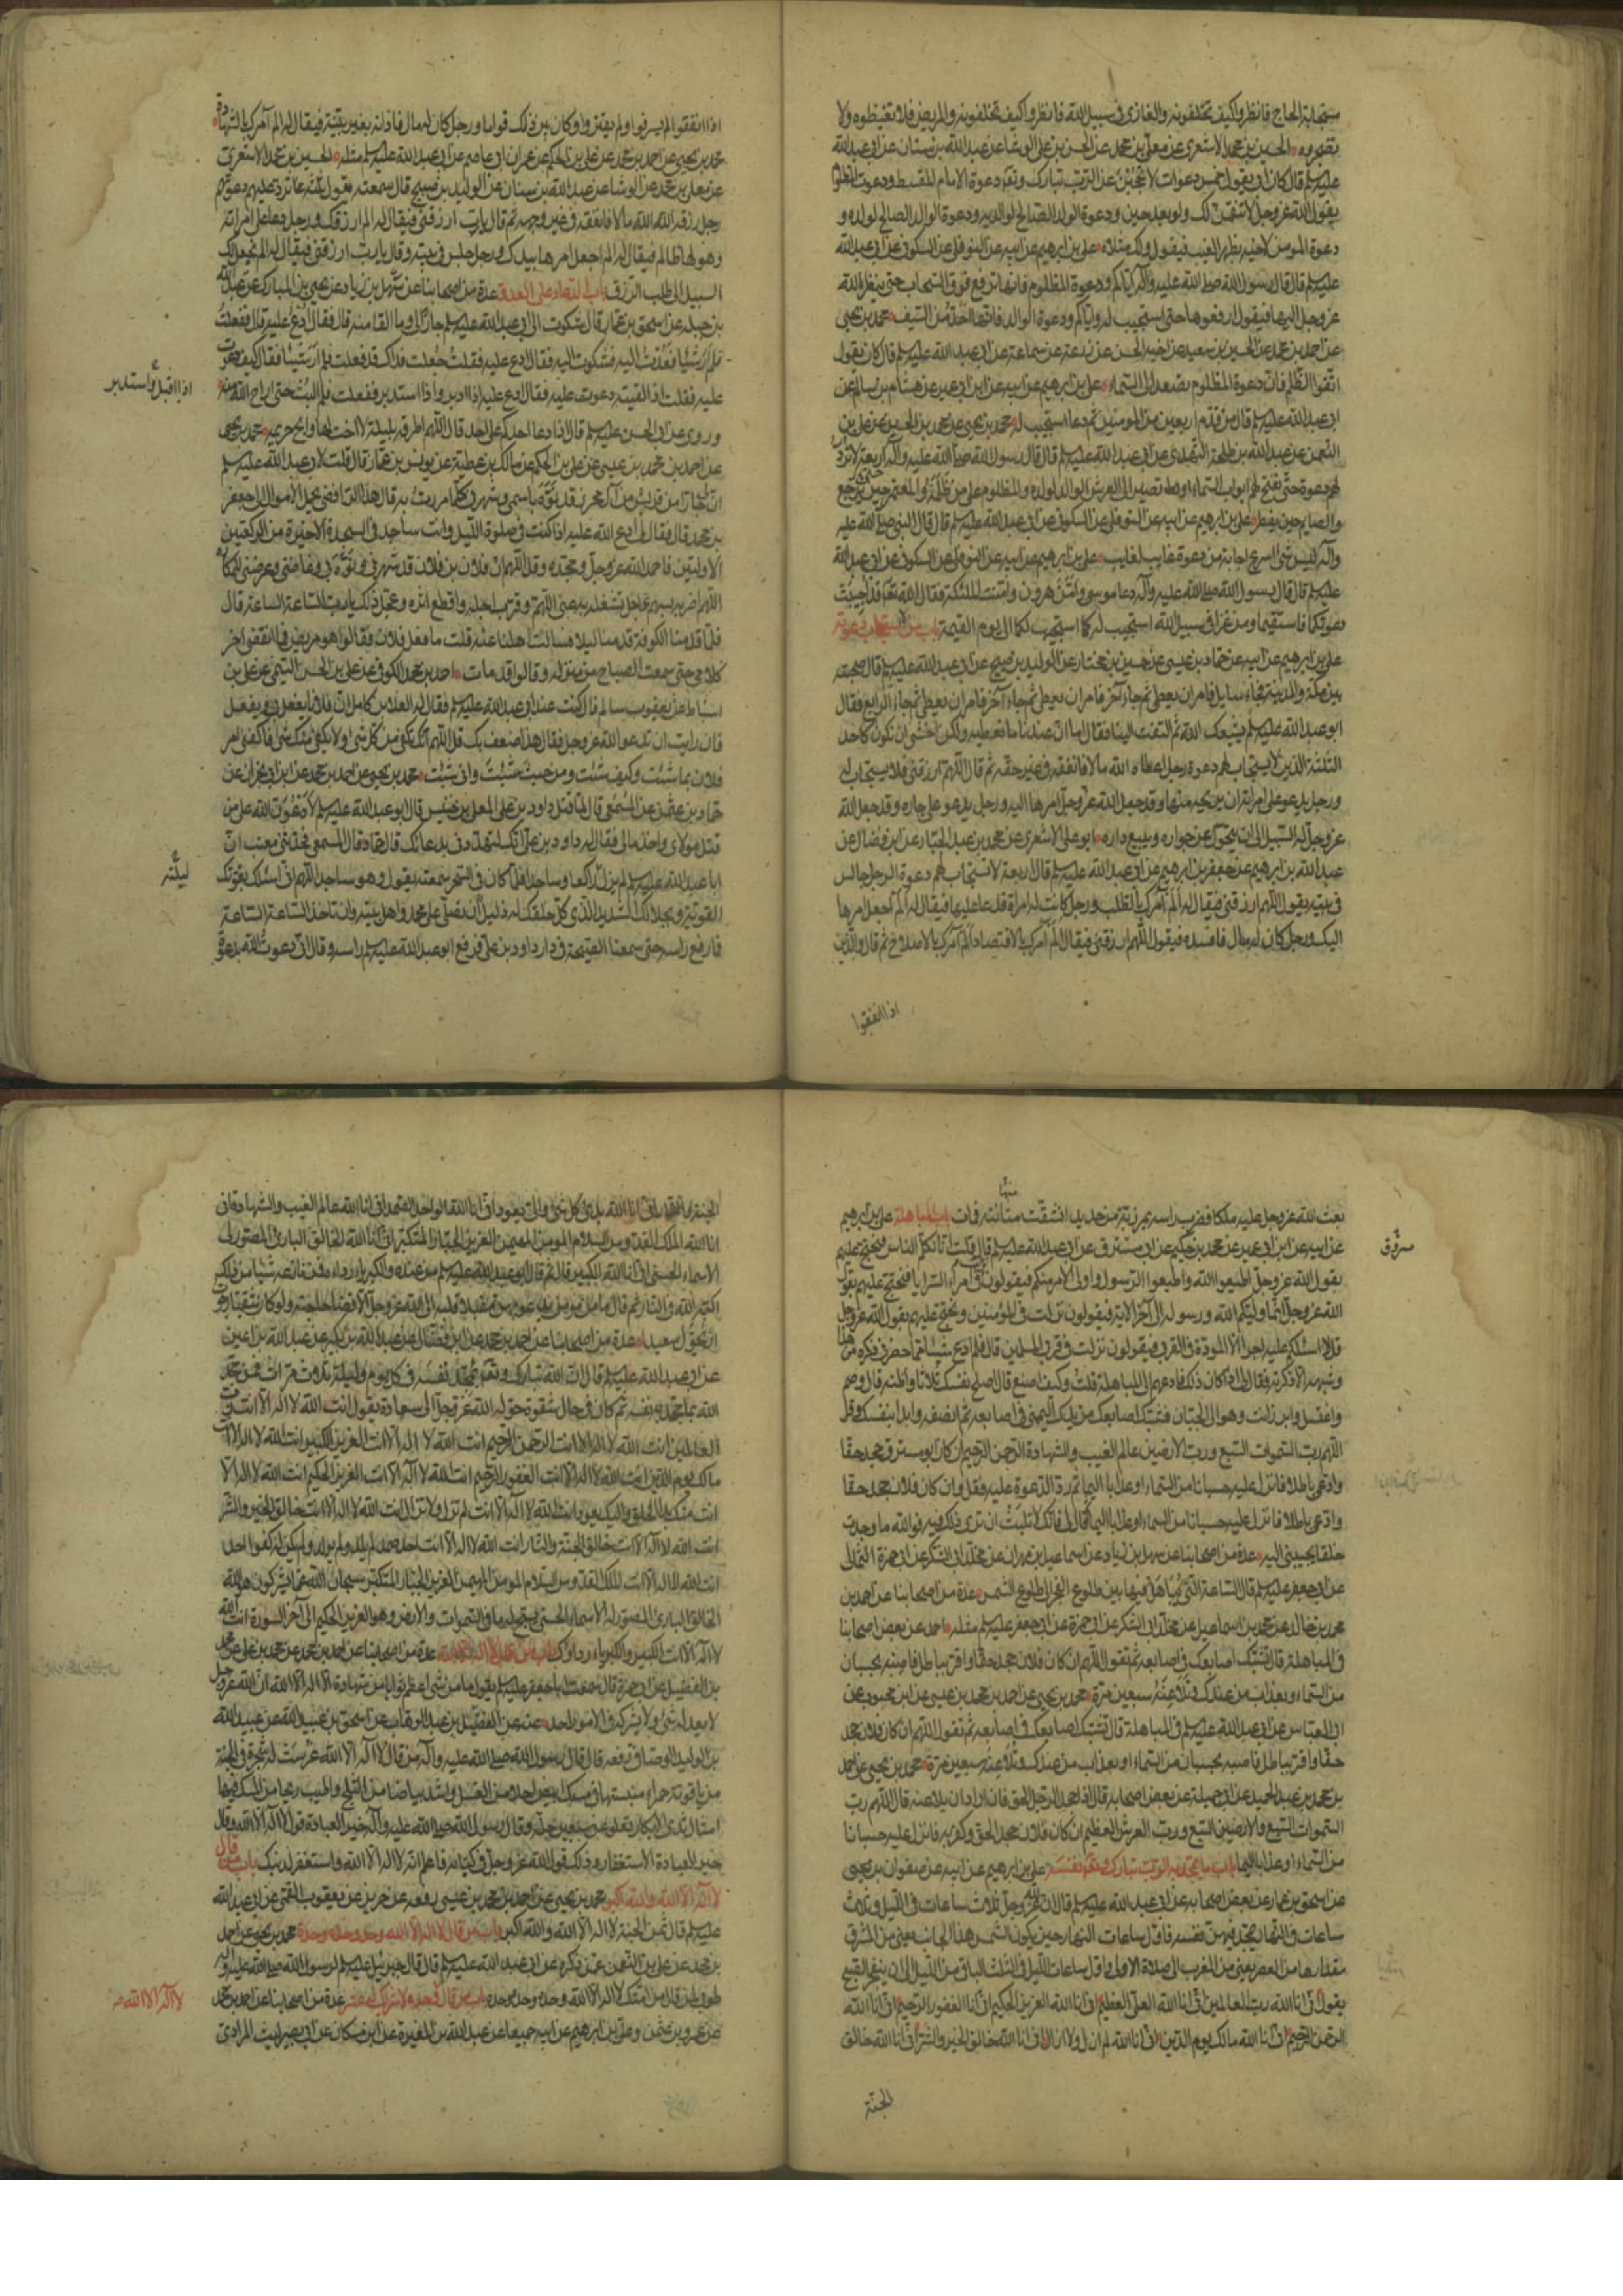 مستجابة الحاج فانظروا كيف تخلفونه والغازي في سبيل الله فانظروا كيف تخلفونه والمريض فلا تغيظوه ولا
تضجروه الحسين بن محمد الاشعري عن معلى بن محمد عن الحسن بن علي الوشا عن عبد الله بن سنان عن ابي عبد الله
عليه السلم قال كان ابي يقول خمس دعوات لا تحجبن عن الرب تبارك وتعالى دعوة الامام المقسط ودعوة المظلوم
يقول الله عز وجل لانتقمن لك ولو بعد حين ودعوة الولد الصالح لوالديه ودعوة الوالد الصالح لولده و
دعوة المومن لاخيه بظهر الغيب فيقول ولك مثلاه علي بن ابرهيم عن ابيه عن النوفلي عن السكوني عن ابي عبد الله
عليه السلم قال قال رسول الله صلى الله عليه وآله اياكم ودعوة المظلوم فانها ترفع فوق السحاب حتى ينظر الله
عز وجل اليها فيقول ارفعوها حتى استجيب له واياكم ودعوة الوالد فانها احد من السيف محمد بن يحيى
عن احمد بن محمد عن الحسين بن سعيد عن اخيه الحسن عن زرعة عن سماعة عن ابي عبد الله عليه السلم قال كان يقول
اتقوا الظلم فان دعوة المظلوم تصعد الى السماء علي بن ابرهيم عن ابيه عن ابن ابي عمير عن هشام بن سالم عن
ابي عبد الله عليه السلم قال من قدم اربعين من المومنين ثم دعا استجيب له محمد بن يحيى عن محمد بن الحسين عن علي بن
النعمن عن عبد الله بن طلحة النهدي عن ابي عبد الله عليه السلم قال قال رسول الله صلى الله عليه وآله اربعة لا ترد
لهم دعوة حتى تفتح لهم ابواب السماء وتصير الى العرش الوالد لولده والمظلوم على من ظلمه والمعتمر حتى يرجع
والصايم حين يفطر علي بن ابرهيم عن ابيه عن النوفلي عن السكوني عن ابي عبد الله عليه السلم قال قال النبي صلى الله عليه
وآله ليس شي اسرع اجابة من دعوة غايب لغايب علي بن ابرهيم عن ابيه عن النوفلي عن السكوني عن ابي عبد الله
عليه السلم قال قال رسول الله صلى الله عليه وآله دعا موسى وامن هرون وامنت الملئكة فقال الله تعالى قد اجيبت
دعوتكما فاستقيما ومن غزا في سبيل الله استجيب له كما استجيب لكما الى يوم القيمة باب من لا تستجاب دعوته
علي بن ابرهيم عن ابيه عن حماد بن عيسى عن حسين بن مختار عن الوليد بن صبيح عن ابي عبد الله عليه السلم قال صحبته
بين مكة والمدينة فجاء سايل فامر ان يعطى ثم جاء آخر فامر ان يعطى ثم جاء آخر فامر ان يعطى ثم جاء الرابع فقال
ابو عبد الله عليه السلم يشبعك الله ثم التفت الينا فقال اما ان عندنا ما نعطيه ولكن اخشى ان نكون كاحد
الثلثة الذين لا يستجاب لهم دعوة رجل اعطاه الله مالا فانفقه في غير حقه ثم قال اللهم ارزقني فلا يستجاب له
ورجل يدعو على امراته ان يريحه منها وقد جعل الله عز وجل امرها اليه ورجل يدعو على جاره وقد جعل الله
عز وجل له السبيل الى ان يتحول عن جواره ويبيع داره ابو علي الاشعري عن محمد بن عبد الجبار عن ابن فضال عن
عبد الله بن ابرهيم عن جعفر بن ابرهيم عن ابي عبد الله عليه السلم قال اربعة لا تستجاب لهم دعوة الرجل جالس
في بيته يقول اللهم ارزقني فيقال له الم آمرك بالطلب ورجل كانت له امراة فدعا عليها فيقال له الم اجعل امرها
اليك ورجل كان له مال فافسده فيقول اللهم ارزقني فيقال الم آمرك بالاقتصاد الم آمرك بالاصلاح ثم قال والذين
اذا انفقوا
اذا انفقوا لم يسرفوا ولم يقتروا وكان بين ذلك قواما ورجل كان له مال فادانه بغير بينة فيقال له الم آمرك بالشهادة
محمد بن يحيى عن احمد بن محمد عن علي بن الحكم عن عمران ابي عاصم عن ابي عبد الله عليه السلم مثله الحسين بن محمد الاشعري
عن معلى بن محمد عن الوشا عن عبد الله بن سنان عن الوليد بن صبيح قال سمعته يقول ثلثة ترد عليهم دعوتهم
رجل رزقه الله مالا فانفقه في غير وجهه ثم قال يا رب ارزقني فيقال له الم ارزقك ورجل دعا على امراته
وهو لها ظالم فيقال له الم اجعل امرها بيدك ورجل جلس في بيته وقال يا رب ارزقني فيقال له الم اجعل لك
السبيل الى طلب الرزق باب الدعاء على العدو عدة من اصحابنا عن سهل بن زياد عن يحيى بن المبارك عن عبد الله
بن جبلة عن اسحق بن عمار قال شكوت الى ابي عبد الله عليه السلم جارا لي وما القا منه قال فقال ادع عليه قال ففعلت
فلم ار شيئا فعدت اليه فشكوت اليه فقال ادع عليه فقلت جعلت فداك قد فعلت فلم ار شيئا فقال كيف دعوت
عليه فقلت اذا لقيته دعوت عليه فقال ادع عليه اذا ادبر واذا استدبر ففعلت فلم البث حتى اراح الله منه
اذا اقبل واستدبر
وروى عن ابي الحسن عليه السلم قال اذا دعا احدكم على احد قال اللهم اطرقه ببلية لا اخت لها وابح حريمه محمد بن يحيى
عن احمد بن محمد بن عيسى عن علي بن الحكم عن مالك بن عطية عن يونس بن عمار قال قلت لابي عبد الله عليه السلم
ان لي جارا من قريش من آل محرز قد نوه باسمي وشهرني كلما مررت به قال هذا الرافضي يحمل الاموال الى جعفر
بن محمد قال فقال لي ادع الله عليه اذا كنت في صلوة الليل وانت ساجد في السجدة الاخيرة من الركعتين
الاولتين فاحمد الله عز وجل ومجده وقل اللهم ان فلان بن فلان قد شهرني ونوه بي وغاضني وعرضني للمكاره
اللهم اضربه بسهم عاجل تشغله به عني اللهم وقرب اجله واقطع اثره وعجل ذلك يا رب الساعة الساعة قال
فلما قدمنا الكوفة قدمنا ليلا فسالت اهلنا عنه قلت ما فعل فلان فقالوا هو مريض فما انقضى اخر
كلامي حتى سمعت الصياح من منزله وقالوا قد مات احمد بن محمد الكوفي عن علي بن الحسن التيمي عن علي بن
اسباط عن يعقوب بن سالم قال كنت عند ابي عبد الله عليه السلم فقال له العلا بن كامل ان فلانا يفعل بي ويفعل
فان رايت ان تدعو الله عز وجل فقال هذا ضعف بك قل اللهم انك تكفي من كل شي ولا يكفي منك شي فاكفني امر
فلان بما شئت وكيف شئت ومن حيث شئت وانى شئت محمد بن يحيى عن احمد بن محمد عن ابن ابي نجران عن
حماد بن عثمن عن المسمعي قال لما قتل داود بن علي المعلى بن خنيس قال ابو عبد الله عليه السلم لادعون الله على من
قتل مولاي واخذ مالي فقال له داود بن علي انك لتهددني بدعائك قال حماد قال المسمعي فحدثني معتب ان
ابا عبد الله عليه السلم لم يزل راكعا وساجدا فلما كان في السحر سمعته يقول وهو ساجد اللهم اني اسئلك بقوتك
ليلته
القوية وبجلالك الشديد الذي كل خلقك له ذليل ان تصلي على محمد واهل بيته وان تاخذه الساعة الساعة
فما رفع راسه حتى سمعنا الصيحة في دار داود بن علي فرفع ابو عبد الله عليه السلم راسه وقال اني دعوت الله بدعوة
منها
بعث الله عز وجل عليه ملكا فضرب راسه بمرزبة من حديد انشقت مثانته فمات باب المباهلة علي بن ابرهيم
عن ابيه عن ابن ابي عمير عن محمد بن حكيم عن ابي مسترق عن ابي عبد الله عليه السلم قال قلت انا نكلم الناس فنحتج عليهم
مسروق
بقول الله عز وجل اطيعوا الله واطيعوا الرسول واولي الامر منكم فيقولون نزلت في امراء السرايا فنحتج عليهم بقول
الله عز وجل انما وليكم الله ورسوله الى آخر الاية فيقولون نزلت في المؤمنين ونحتج عليهم بقول الله عز وجل
قل لا اسئلكم عليه اجرا الا المودة في القربى فيقولون نزلت في قربى المسلمين قال فلم ادع شيئا مما حضرني ذكره من هذا
وشبهه الا ذكرته فقال لي اذا كان ذلك فادعهم الى المباهلة قلت وكيف اصنع قال اصلح نفسك ثلاثا واظنه قال وصم
واغتسل وابرز انت وهو الى الجبان فشبك اصابعك من يدك اليمنى في اصابعه ثم انصفه وابدا بنفسك وقل
اللهم رب السموات السبع ورب الارضين عالم الغيب والشهادة الرحمن الرحيم ان كان ابو مسترق جحد حقا
وادعى باطلا فانزل عليه حسبانا من السماء او عذابا اليما ثم رد الدعوة عليه فقل وان كان فلان جحد حقا
وادعى باطلا فانزل عليه حسبانا من السماء او عذابا اليما ثم قال لي فانك لا تلبث ان ترى ذلك فيه فوالله ما وجدت
خلقا يجيبني اليه عدة من اصحابنا عن سهل بن زياد عن اسماعيل بن مهران عن مخلد ابي الشكر عن ابي حمزة الثمالي
عن ابي جعفر عليه السلم قال الساعة التي تباهل فيها ما بين طلوع الفجر الى طلوع الشمس عدة من اصحابنا عن احمد بن
محمد بن خالد عن محمد بن اسماعيل عن مخلد ابي الشكر عن ابي حمزة عن ابي جعفر عليه السلم مثله احمد عن بعض اصحابنا
في المباهلة قال تشبك اصابعك في اصابعه ثم تقول اللهم ان كان فلان جحد حقا واقر بباطل فاصبه بحسبان
من السماء او بعذاب من عندك وتلاعنه سبعين مرة محمد بن يحيى عن احمد بن محمد بن عيسى عن ابن محبوب عن
ابي العباس عن ابي عبد الله عليه السلم في المباهلة قال تشبك اصابعك في اصابعه ثم تقول اللهم ان كان فلان جحد
حقا واقر بباطل فاصبه بحسبان من السماء او بعذاب من عندك وتلاعنه سبعين مرة محمد بن يحيى عن احمد
بن محمد بن عبد الحميد عن ابي جميلة عن بعض اصحابه قال اذا جحد الرجل الحق فان اراد ان يلاعنه قال اللهم رب
السموات السبع والارضين السبع ورب العرش العظيم ان كان فلان جحد الحق وكفر به فانزل عليه حسبانا
من السماء او عذابا اليما باب ما يمجد به الرب تبارك وتعالى نفسه علي بن ابرهيم عن ابيه عن صفوان بن يحيى
عن اسحق بن عمار عن بعض اصحابه عن ابي عبد الله عليه السلم قال ان لله عز وجل ثلاث ساعات في الليل وثلاث
ساعات في النهار يمجد فيهن نفسه فاول ساعات النهار حين يكون الشمس هذا الجانب يعني من المشرق
مقدارها من العصر يعني من المغرب الى صلاة الاولى واول ساعات الليل في الثلث الباقي من الليل الى ان ينفجر الصبح
يقول اني انا الله رب العالمين اني انا الله العلي العظيم اني انا الله العزيز الحكيم اني انا الله الغفور الرحيم اني انا الله
الرحمن الرحيم اني انا الله مالك يوم الدين اني انا الله لم ازل ولا ازال اني انا الله خالق الخير والشر اني انا الله خالق
الجنة
الجنة والنار اني انا الله بدئ كل شي والي يعود اني انا الله الواحد الصمد اني انا الله عالم الغيب والشهادة اني
انا الله الملك القدوس السلام المومن المهيمن العزيز الجبار المتكبر اني انا الله الخالق البارئ المصور لي
الاسماء الحسنى اني انا الله الكبير قال ثم قال ابو عبد الله عليه السلم من عنده والكبرياء رداءه فمن نازعه شيئا من ذلك
اكبه الله في النار ثم قال ما من مومن يدعو بهن مقبلا قلبه الى الله عز وجل الا قضى حاجته ولو كان شقيا رجوت
ان يحول سعيدا عدة من اصحابنا عن احمد بن محمد عن ابن فضال عن عبد الله بن بكير عن عبد الله بن اعين
عن ابي عبد الله عليه السلم قال ان الله تبارك وتعالى يمجد نفسه في كل يوم وليلة ثلاث مرات فمن مجد
الله بما مجد به نفسه ثم كان في حال شقوة حوله الله عز وجل الى سعادة يقول انت الله لا اله الا انت رب
العالمين انت الله لا اله الا انت الرحمن الرحيم انت الله لا اله الا انت العزيز الكبير انت الله لا اله الا انت
مالك يوم الدين انت الله لا اله الا انت الغفور الرحيم انت الله لا اله الا انت العزيز الحكيم انت الله لا اله الا
انت منك بدا الخلق واليك يعود انت الله لا اله الا انت لم تزل ولا تزال انت الله لا اله الا انت خالق الخير والشر
انت الله لا اله الا انت خالق الجنة والنار انت الله لا اله الا انت احد صمد لم يلد ولم يولد ولم يكن له كفوا احد
انت الله لا اله الا انت الملك القدوس السلام المومن المهيمن العزيز الجبار المتكبر سبحان الله عما يشركون هو الله
الخالق البارئ المصور له الاسماء الحسنى يسبح له ما في السموات والارض وهو العزيز الحكيم الى آخر السورة انت الله
لا اله الا انت الكبير والكبرياء رداؤك باب من قال لا اله الا الله عدة من اصحابنا عن احمد بن محمد عن محمد بن علي عن محمد
بن الفضيل عن ابي حمزة قال سمعت ابا جعفر عليه السلم يقول ما من شي اعظم ثوابا من شهادة الا اله الا الله ان الله عز وجل
لا يعدله شي ولا يشركه في الامور احد عنه عن الفضيل بن عبد الوهاب عن اسحق بن عبيد الله عن عبيد الله
بن الوليد الوصافي رفعه قال قال رسول الله صلى الله عليه وآله من قال لا اله الا الله غرست له شجرة في الجنة
من ياقوتة حمراء منبتها في مسك ابيض احلا من العسل واشد بياضا من الثلج واطيب ريحا من المسك فيها
امثال ثدي الابكار تعلو عن سبعين حلة وقال رسول الله صلى الله عليه وآله خير العبادة قول لا اله الا الله وقال
خير العبادة الاستغفار وذلك قول الله عز وجل في كتابه فاعلم انه لا اله الا الله واستغفر لذنبك باب من قال
لا اله الا الله والله اكبر محمد بن يحيى عن احمد بن محمد بن عيسى رفعه عن حريز عن يعقوب القمي عن ابي عبد الله
عليه السلم قال ثمن الجنة لا اله الا الله والله اكبر باب من قال لا اله الا الله وحده وحده وحده محمد بن يحيى عن احمد
بن محمد عن علي بن النعمن عمن ذكره عن ابي عبد الله عليه السلم قال قال جبرئيل عليه السلم لرسول الله صلى الله عليه وآله
طوبى لمن قال من امتك لا اله الا الله وحده وحده وحده باب من قال وحده لا شريك له عشرا عدة من اصحابنا عن احمد بن محمد
لا اله الا الله
عن عمرو بن عثمن وعلي بن ابرهيم عن ابيه جميعا عن عبد الله بن المغيرة عن ابن مسكان عن ابي بصير ليث المرادي